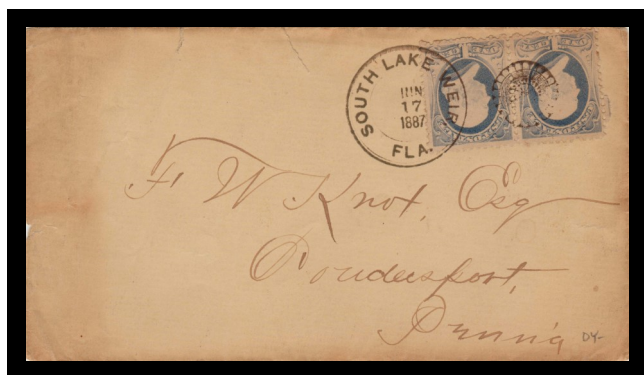 SOUTH LAKE WEIR
JUN
17
1887
FLA.
F. W. Knox, Esq
Coudersport,
Penn'a
DY-